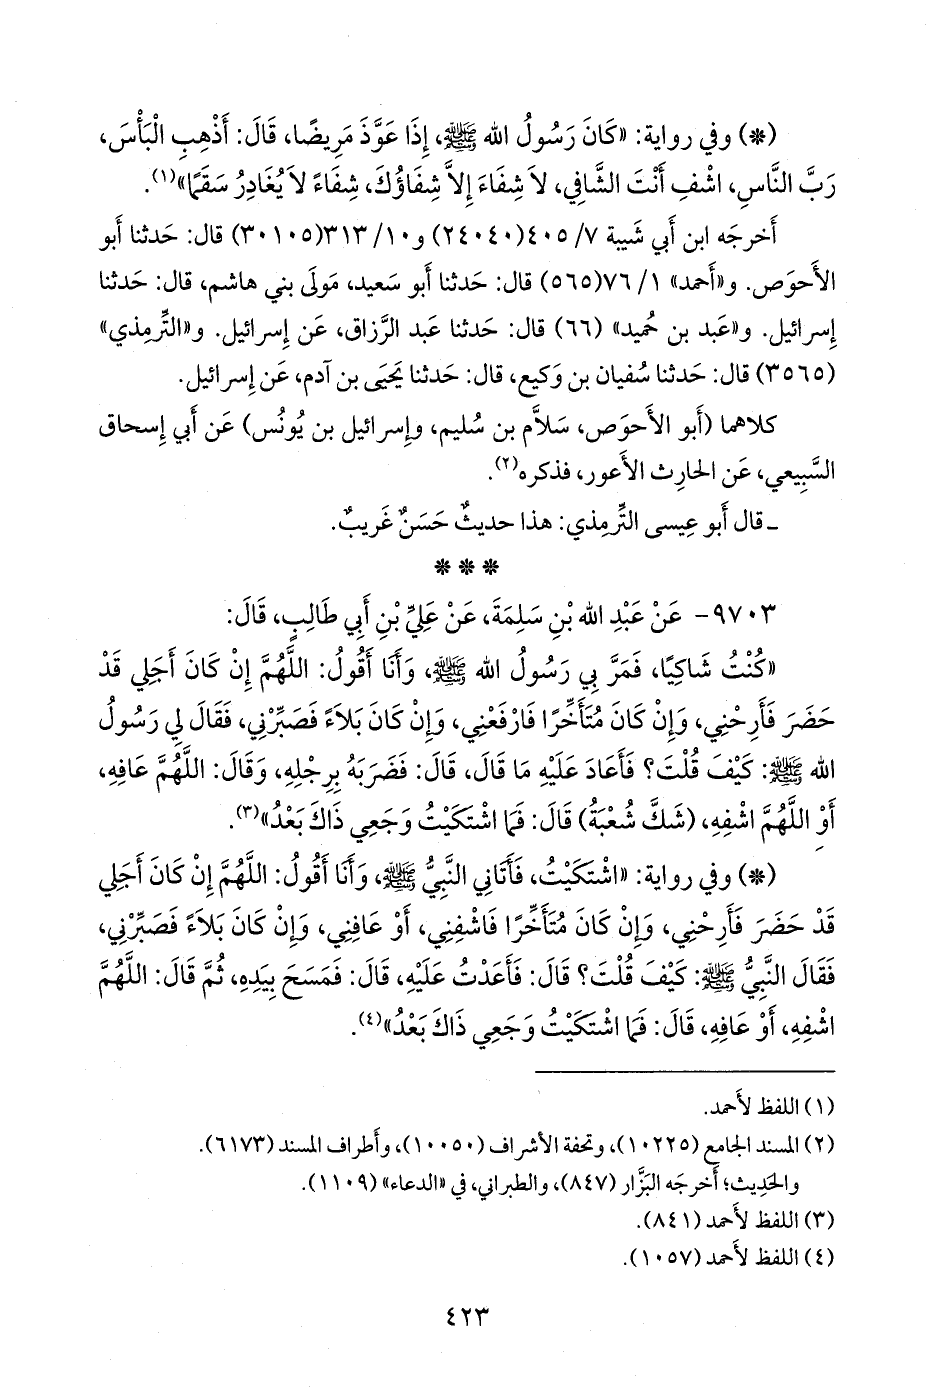 (*) وفي رواية: «كَانَ رَسُولُ الله ﷺ، إِذَا عَوَّذَ مَرِيضًا، قَالَ: أَذْهِبِ الْبَأْسَ،
رَبَّ النَّاسِ، اشْفِ أَنْتَ الشَّافِي، لاَ شِفَاءَ إِلاَّ شِفَاؤُكَ، شِفَاءً لاَ يُغَادِرُ سَقَمًا»(١).
أَخرجَه ابن أَبي شَيبة ٧/ ٤٠٥(٢٤٠٤٠) و١٠/ ٣١٣(٣٠١٠٥) قال: حَدثنا أَبو
الأَحوَص. و«أَحمد» ١/ ٧٦(٥٦٥) قال: حَدثنا أَبو سَعيد، مَولَى بني هاشم، قال: حَدثنا
إِسرائيل. و«عَبد بن حُميد» (٦٦) قال: حَدثنا عَبد الرَّزاق، عَن إِسرائيل. و«التِّرمِذي»
(٣٥٦٥) قال: حَدثنا سُفيان بن وَكيع، قال: حَدثنا يَحيَى بن آدم، عَن إِسرائيل.
كلاهما (أَبو الأَحوَص، سَلاَّم بن سُليم، وإِسرائيل بن يُونُس) عَن أَبي إِسحاق
السَّبِيعي، عَن الحارِث الأَعور، فذكره(٢).
ـ قال أَبو عِيسى التِّرمِذي: هذا حديثٌ حَسَنٌ غَريبٌ.
* * *
٩٧٠٣- عَنْ عَبْدِ الله بْنِ سَلِمَةَ، عَنْ عَلِيِّ بْنِ أَبِي طَالِبٍ، قَالَ:
«كُنْتُ شَاكِيًا، فَمَرَّ بِي رَسُولُ الله ﷺ، وَأَنَا أَقُولُ: اللَّهُمَّ إِنْ كَانَ أَجَلِي قَدْ
حَضَرَ فَأَرِحْنِي، وَإِنْ كَانَ مُتَأَخِّرًا فَارْفَعْنِي، وَإِنْ كَانَ بَلاَءً فَصَبِّرْنِي، فَقَالَ لِي رَسُولُ
الله ﷺ: كَيْفَ قُلْتَ؟ فَأَعَادَ عَلَيْهِ مَا قَالَ، قَالَ: فَضَرَبَهُ بِرِجْلِهِ، وَقَالَ: اللَّهُمَّ عَافِهِ،
أَوْ اللَّهُمَّ اشْفِهِ، (شَكَّ شُعْبَةُ) قَالَ: فَمَا اشْتَكَيْتُ وَجَعِي ذَاكَ بَعْدُ»(٣).
(*) وفي رواية: «اشْتَكَيْتُ، فَأَتَانِي النَّبِيُّ ﷺ، وَأَنَا أَقُولُ: اللَّهُمَّ إِنْ كَانَ أَجَلِي
قَدْ حَضَرَ فَأَرِحْنِي، وَإِنْ كَانَ مُتَأَخِّرًا فَاشْفِنِي، أَوْ عَافِنِي، وَإِنْ كَانَ بَلاَءً فَصَبِّرْنِي،
فَقَالَ النَّبِيُّ ﷺ: كَيْفَ قُلْتَ؟ قَالَ: فَأَعَدْتُ عَلَيْهِ، قَالَ: فَمَسَحَ بِيَدِهِ، ثُمَّ قَالَ: اللَّهُمَّ
اشْفِهِ، أَوْ عَافِهِ، قَالَ: فَمَا اشْتَكَيْتُ وَجَعِي ذَاكَ بَعْدُ»(٤).
(١) اللفظ لأَحمد.
(٢) المسند الجامع (١٠٢٢٥)، وتحفة الأَشراف (١٠٠٥٠)، وأَطراف المسند (٦١٧٣).
والحَدِيث؛ أَخرجَه البَزَّار (٨٤٧)، والطبراني، في «الدعاء» (١١٠٩).
(٣) اللفظ لأَحمد (٨٤١).
(٤) اللفظ لأَحمد (١٠٥٧).
٤٢٣